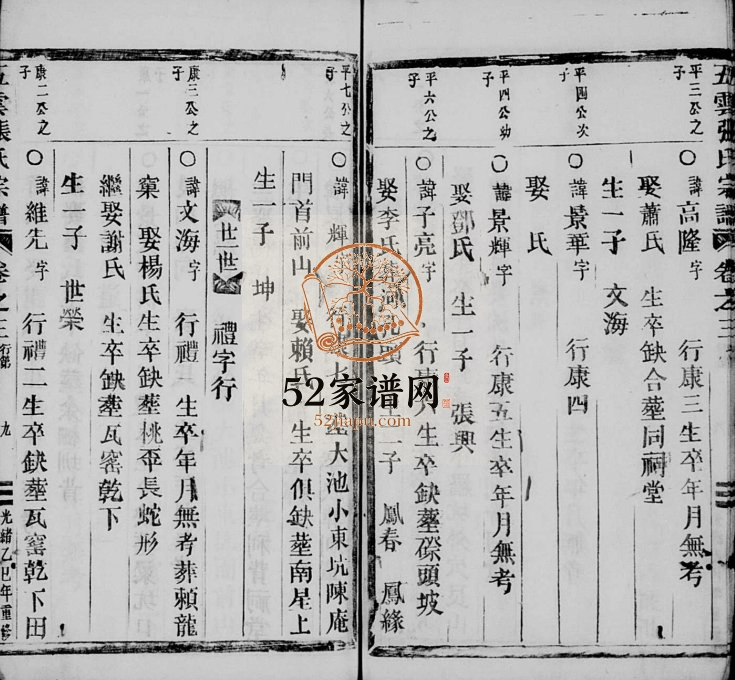 五雲張氏宗譜 卷之三
平三公之子
○諱高隆字 行康三生卒年月無考
娶蕭氏 生卒缺合塟同祠堂
生一子 文海
平四公次子
○諱景華字 行康四
娶 氏
平四公幼子
○諱景輝字 行康五生卒年月無考
娶鄧氏 生一子 張興
平六公之子
○諱子亮字 行康 生卒缺塟磜頭坡
娶李氏 一子 鳳春 鳳緣
平七公之子
○諱輝 行康七 塟大池小東坑陳庵
門首前山 娶賴氏 生卒俱缺塟南星上
生一子 坤
廿一世 禮字行
康三公之子
○諱文海字 行禮 生卒年月無考葬賴龍
窠 娶楊氏生卒缺塟桃 長蛇形
繼娶謝氏 生卒缺塟瓦窰乾下
生一子 世榮
康二公之子
○諱維先字 行禮二生卒缺塟瓦窰乾下田
五雲張氏宗譜 卷之三 行第 九 光緒乙巳年重修
52家谱网
52jiapu.com